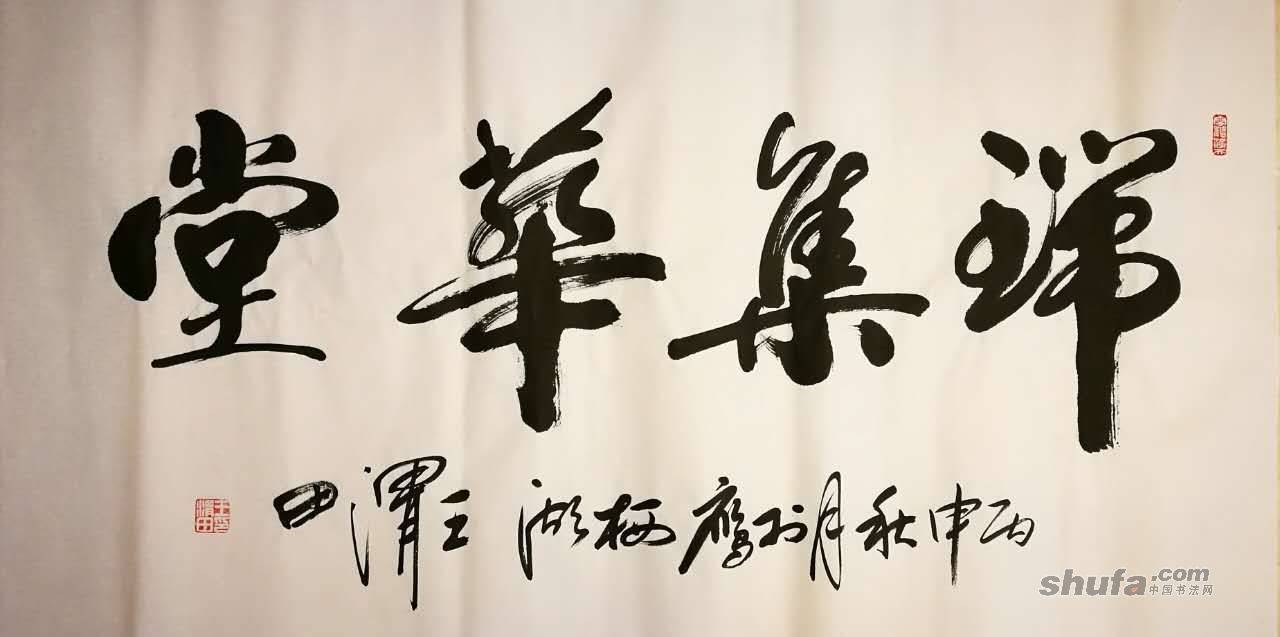 瑞集華堂
丙申秋月於鹰栖湖王渭田
shufa.com
中国书法网